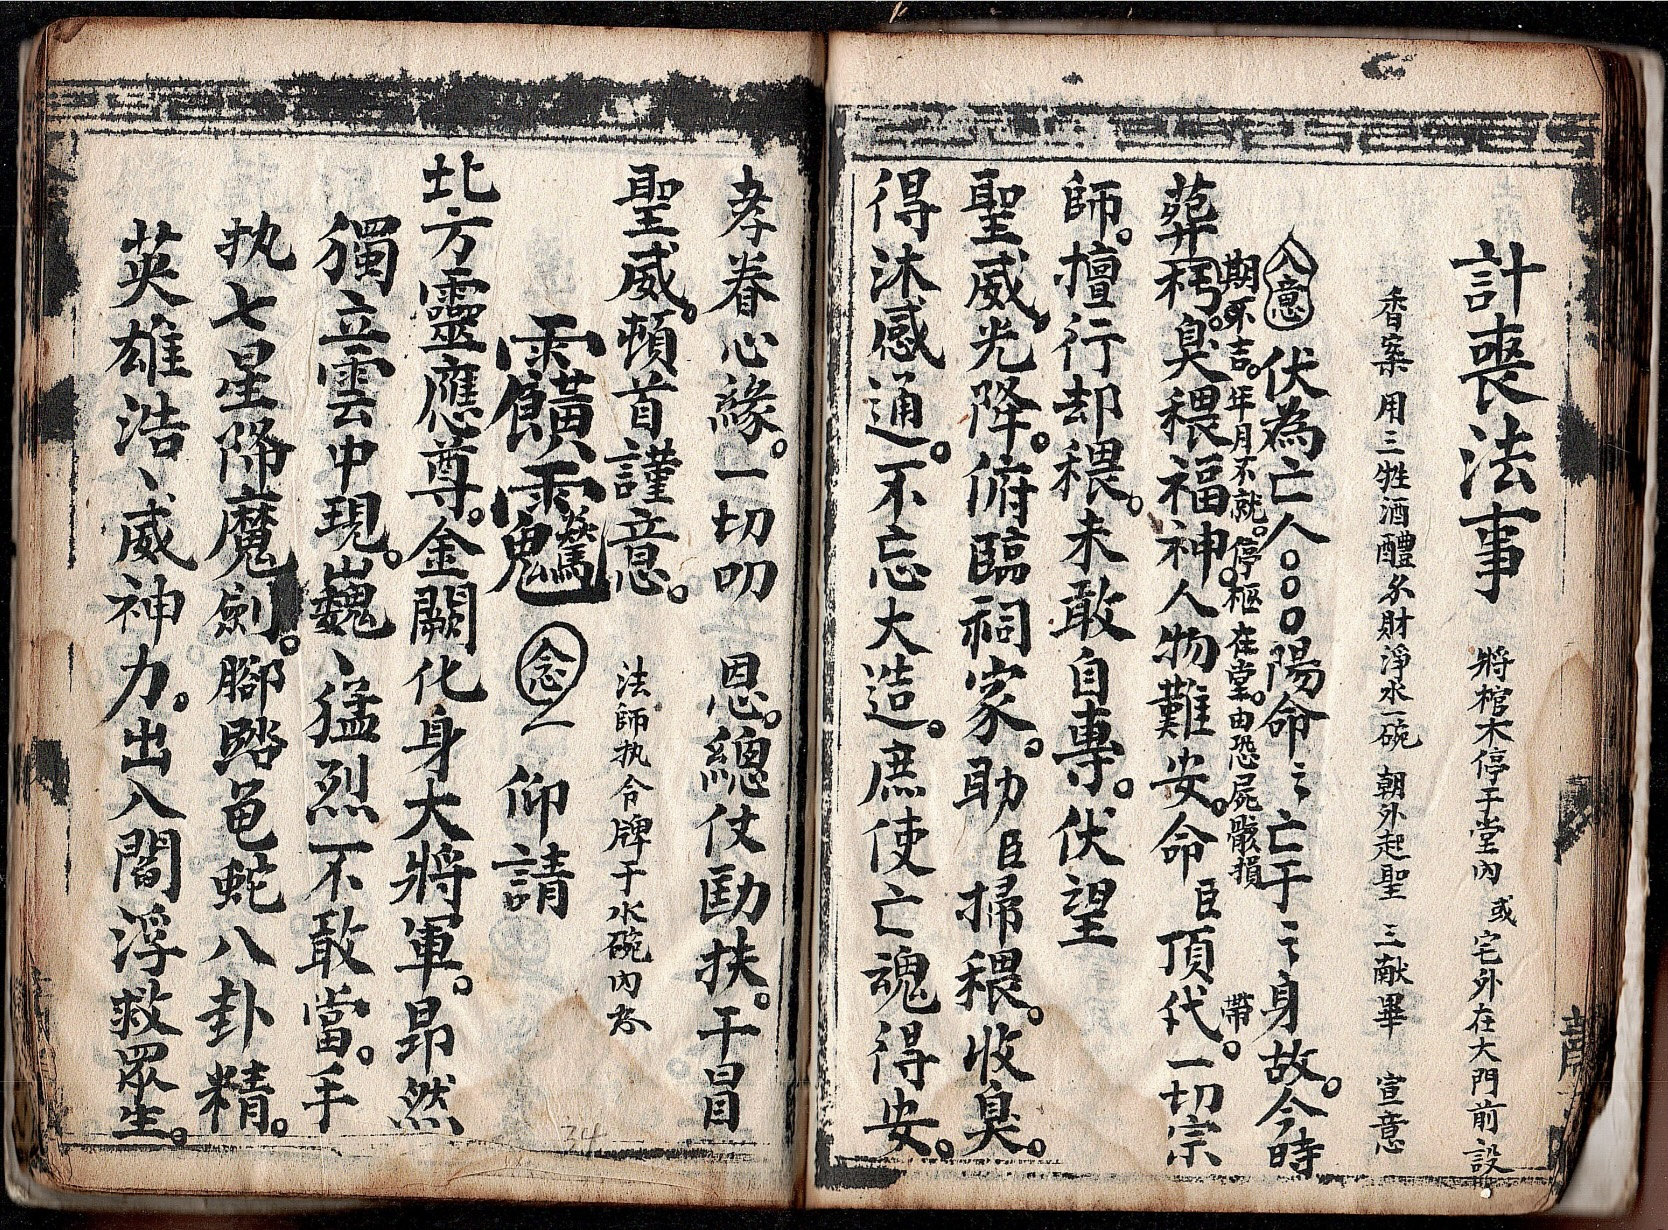 計喪法事 將棺木停于堂內或宅外在大門前設
香案用三牲酒醴分財淨水一碗 朝外起聖 三献畢 宣意
入意 伏為亡人。。。陽命〻亡于〻身故。今時
期不吉。年月不就。停柩在堂。由恐屍骸損
帶。
葬 臭穢福神。人物難安。命臣頂代一切宗
師。擅行却穢。未敢自專。伏望
聖威。光降。俯臨祠家。助臣掃穢。收臭。
得沐感通。不忘大造。庶使亡魂得安。
孝眷心緣。一切叨 恩。總仗匡扶。干冒
聖威。頓首謹意。 法師执令牌于水碗內
念 仰請
北方靈應尊。金闕化身大將軍。昂然
獨立雲中現。巍〻猛烈不敢當。手
执七星降魔劍。腳踏龟蛇八卦精。
英雄浩〻威神力。出入閻浮救眾生。
34